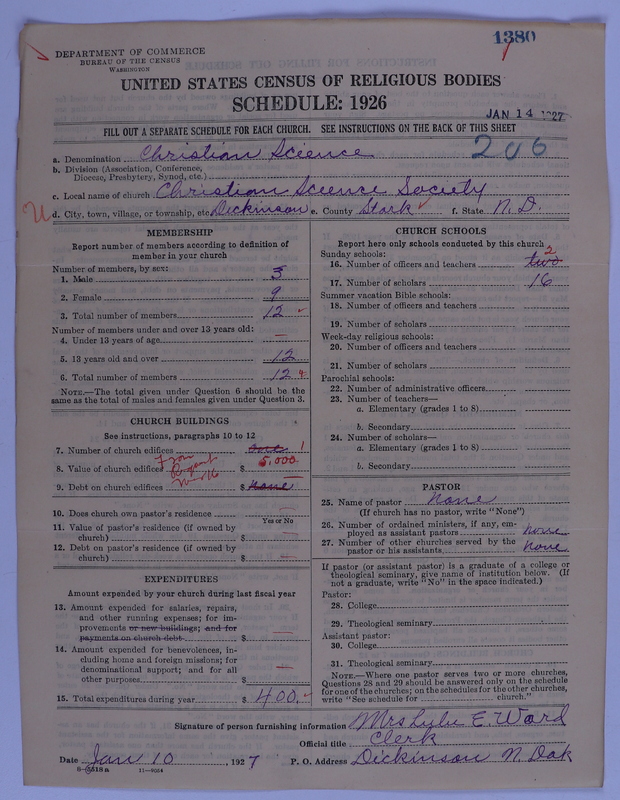 1380
DEPARTMENT OF COMMERCE
BUREAU OF THE CENSUS
WASHINGTON
UNITED STATES CENSUS OF RELIGIOUS BODIES
SCHEDULE: 1926
JAN 14 1927
FILL OUT A SEPARATE SCHEDULE FOR EACH CHURCH. SEE INSTRUCTIONS ON THE BACK OF THIS SHEET
206
a. Denomination Christian Science
b. Division (Association, Conference,
Diocese, Presbytery, Synod, etc.)
c. Local name of church Christian Science Society
d. City, town, village, or township, etc. Dickinson e. County Stark f. State N. D.
MEMBERSHIP
Report number of members according to definition of
member in your church
Number of members, by sex:
1. Male 3
2. Female 9
3. Total number of members 12
Number of members under and over 13 years old:
4. Under 13 years of age —
5. 13 years old and over 12
6. Total number of members 12
NOTE.—The total given under Question 6 should be the
same as the total of males and females given under Question 3.
CHURCH BUILDINGS
See instructions, paragraphs 10 to 12
7. Number of church edifices one 1
8. Value of church edifices $ 5,000
From
9. Debt on church edifices $ none
10. Does church own pastor's residence
Yes or No
11. Value of pastor's residence (if owned by
church) $
12. Debt on pastor's residence (if owned by
church) $
EXPENDITURES
Amount expended by your church during last fiscal year
13. Amount expended for salaries, repairs,
and other running expenses; for im-
provements or new buildings; and for
payments on church debt $
14. Amount expended for benevolences, in-
cluding home and foreign missions; for
denominational support; and for all
other purposes $
15. Total expenditures during year $ 400.
CHURCH SCHOOLS
Report here only schools conducted by this church
Sunday schools:
16. Number of officers and teachers two 2
17. Number of scholars 16
Summer vacation Bible schools:
18. Number of officers and teachers
19. Number of scholars
Week-day religious schools:
20. Number of officers and teachers
21. Number of scholars
Parochial schools:
22. Number of administrative officers
23. Number of teachers—
a. Elementary (grades 1 to 8)
b. Secondary
24. Number of scholars—
a. Elementary (grades 1 to 8)
b. Secondary
PASTOR
25. Name of pastor None
(If church has no pastor, write "None")
26. Number of ordained ministers, if any, em-
ployed as assistant pastors none
27. Number of other churches served by the
pastor or his assistants none
If pastor (or assistant pastor) is a graduate of a college or
theological seminary, give name of institution below. (If
not a graduate, write "No" in the space indicated.)
Pastor:
28. College
29. Theological seminary
Assistant pastor:
30. College
31. Theological seminary
NOTE.—Where one pastor serves two or more churches,
Questions 28 and 29 should be answered only on the schedule
for one of the churches; on the schedules for the other churches,
write "See schedule for church."
Signature of person furnishing information Mrs Lulu E. Ward
Official title Clerk
Date Jan 10, 1927 P. O. Address Dickinson N. Dak
11—9064